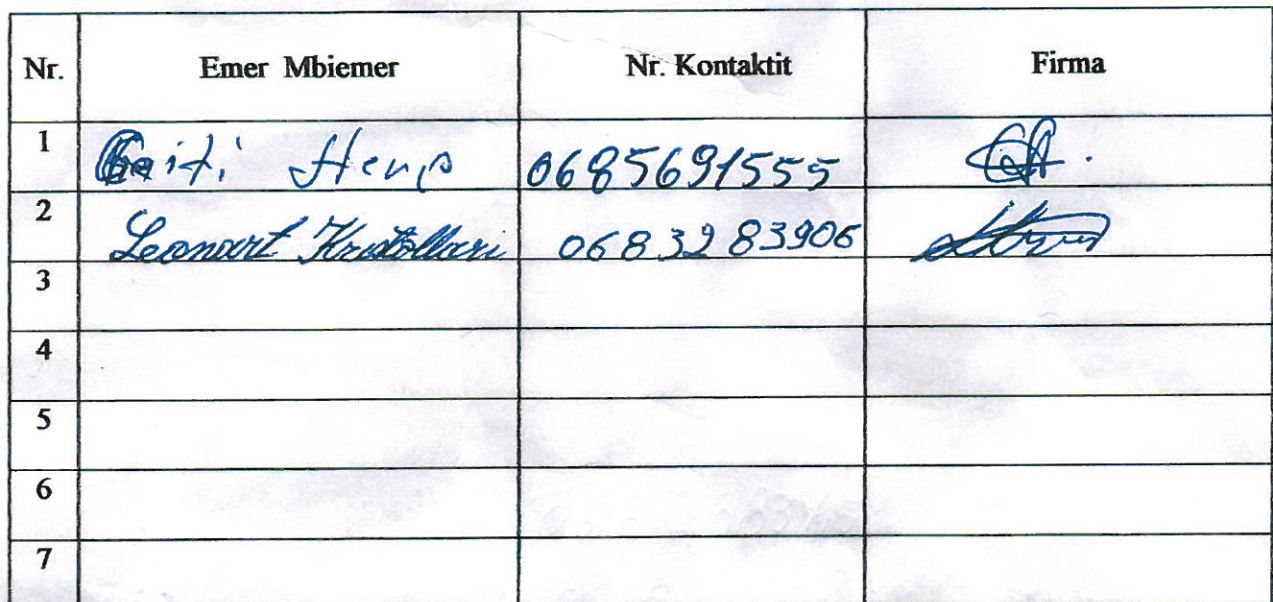 Nr. Emer Mbiemer Nr. Kontaktit Firma
1 0685691555
2 Leonart Kristollari 0683283906
3
4
5
6
7